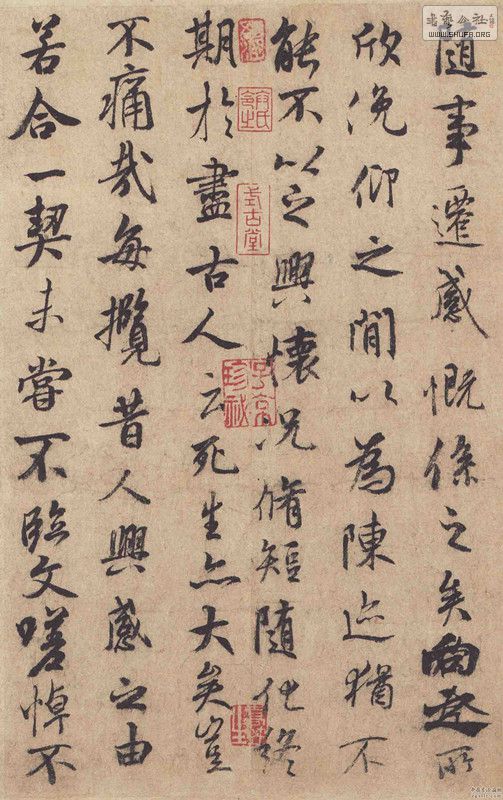 隨事遷感慨係之矣向之所
欣俛仰之閒以為陳迹猶不
能不以之興懷況脩短隨化終
期於盡古人云死生亦大矣豈
不痛哉每攬昔人興感之由
若合一契未嘗不臨文嗟悼不
式古堂
子京珍祕
書藝公社
WWW.SHUFA.ORG